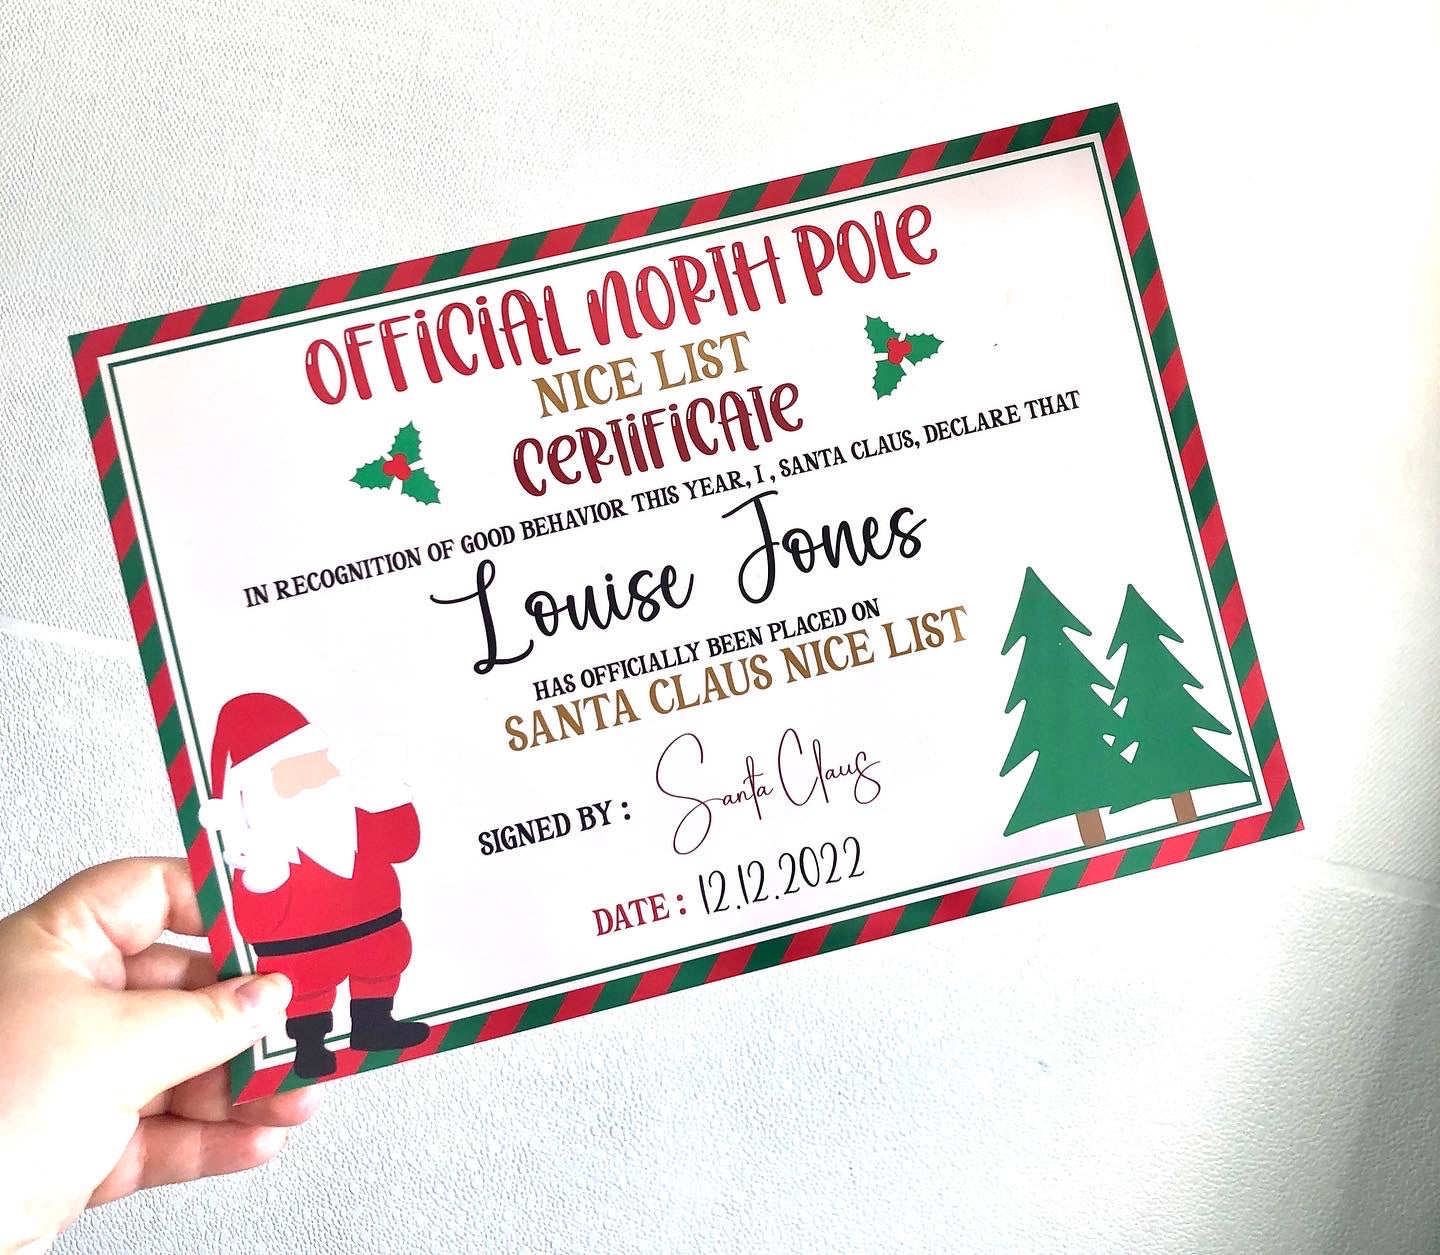 OFFICIAL NORTH POLE
NICE LIST
CERTIFICATE
IN RECOGNITION OF GOOD BEHAVIOR THIS YEAR, I , SANTA CLAUS, DECLARE THAT
Louise Jones
HAS OFFICIALLY BEEN PLACED ON
SANTA CLAUS NICE LIST
SIGNED BY : Santa Claus
DATE : 12.12.2022